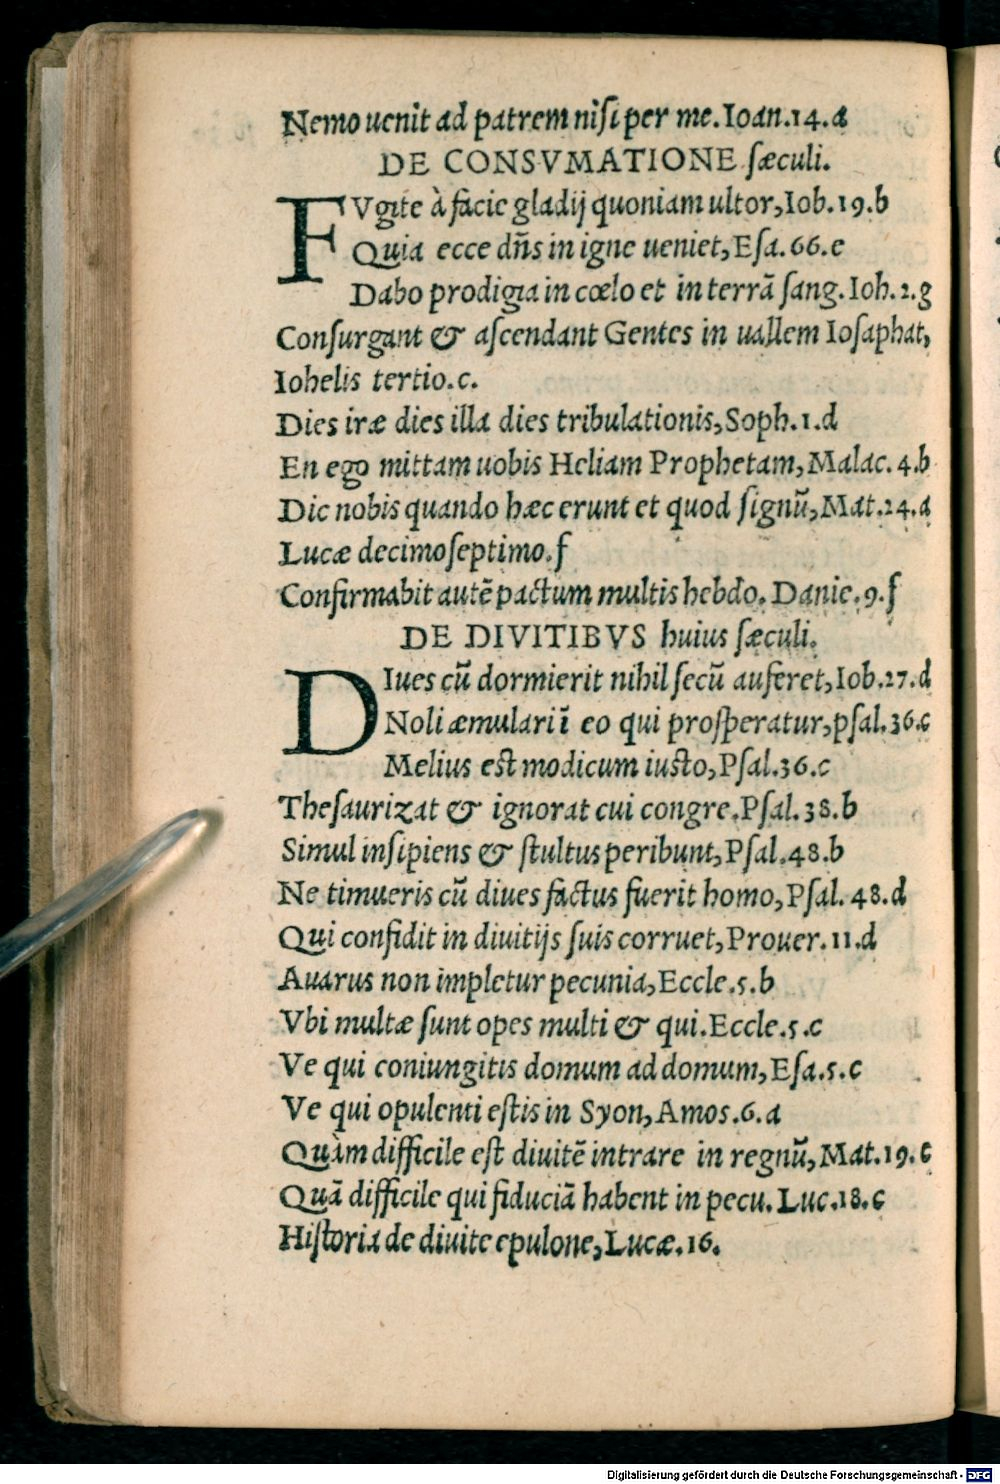 Nemo uenit ad patrem nisi per me. Ioan.14.a
DE CONSVMATIONE sæculi.
FVgite à facie gladij quoniam ultor, Iob.19.b
Quia ecce dñs in igne ueniet, Esa.66.e
Dabo prodigia in cœlo et in terrā sang. Ioh.2.g
Consurgant & ascendant Gentes in uallem Iosaphat,
Iohelis tertio.c.
Dies iræ dies illa dies tribulationis, Soph.1.d
En ego mittam uobis Heliam Prophetam, Malac.4.b
Dic nobis quando hæc erunt et quod signū, Mat.24.a
Lucæ decimoseptimo.f
Confirmabit autē pactum multis hebdo. Danie.9.f
DE DIVITIBVS huius sæculi.
DIues cū dormierit nihil secū auferet, Iob.27.d
Noli æmulari ī eo qui prosperatur, psal.36.c
Melius est modicum iusto, Psal.36.c
Thesaurizat & ignorat cui congre. Psal.38.b
Simul insipiens & stultus peribunt, Psal.48.b
Ne timueris cū diues factus fuerit homo, Psal.48.d
Qui confidit in diuitijs suis corruet, Prouer.11.d
Auarus non impletur pecunia, Eccle.5.b
Vbi multæ sunt opes multi & qui. Eccle.5.c
Ve qui coniungitis domum ad domum, Esa.5.c
Ve qui opulenti estis in Syon, Amos.6.a
Quàm difficile est diuitē intrare in regnū, Mat.19.c
Quā difficile qui fiduciā habent in pecu. Luc.18.c
Historia de diuite epulone, Lucæ.16.
Digitalisierung gefördert durch die Deutsche Forschungsgemeinschaft - DFG